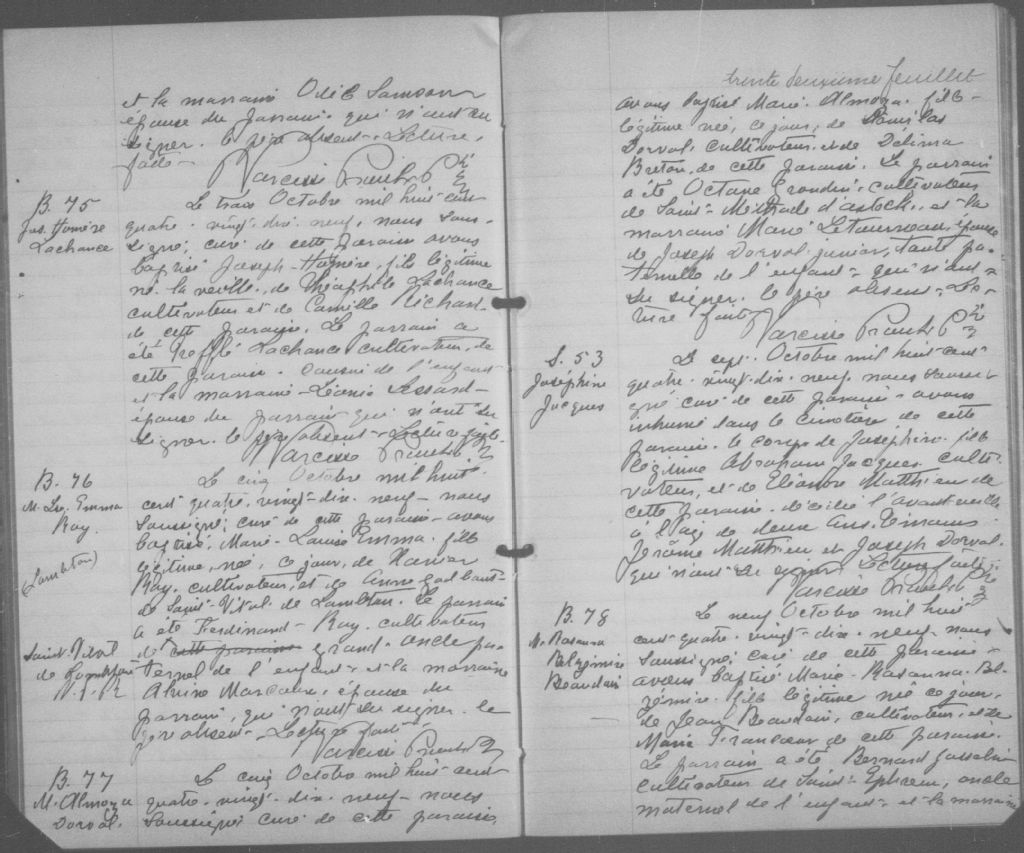 et la marraine Odile Samson
épouse du parrain qui n'ont su
signer. le père absent. Lecture
faite
Narcisse Proulx Ptre
B. 75
Jos. Homère
Lachance
Le trois Octobre mil huit cent
quatre-vingt-dix-neuf, nous sous-
signé, curé de cette paroisse avons
baptisé Joseph-Homère, fils légitime
né la veille, de Théophile Lachance
cultivateur et de Camille Richard
de cette paroisse. Le parrain a
été Trefflé Lachance cultivateur, de
cette paroisse cousin de l'enfant
et la marraine Léonie Lessard
épouse du parrain qui n'ont su
signer. le père absent. Lecture faite.
Narcisse Proulx Ptre
B. 76
M. Ls. Emma
Roy.
(Lambton)
Le cinq Octobre mil huit
cent quatre-vingt-dix-neuf nous
soussigné, curé de cette paroisse avons
baptisé, Marie-Louise Emma, fille
légitime, née, ce jour, de Xavier
Roy, cultivateur, et de Anne
de Saint-Vital de Lambton. Le parrain
a été Ferdinand Roy, cultivateur
Saint-Vital
de Lambton
de cette paroisse grand-oncle pa-
ternel de l'enfant et la marraine
Alvine Marcoux, épouse du
parrain, qui n'ont su signer. le
père absent. Lecture faite.
Narcisse Proulx Ptre
B. 77
M. Almoza
Dorval.
Le cinq Octobre mil huit cent
quatre-vingt-dix-neuf nous
soussigné curé de cette paroisse,
trente deuxième feuillet
avons baptisé Marie-Almoza, fille
légitime née, ce jour, de Stanislas
Dorval, cultivateur et de Délima
Breton, de cette paroisse. Le parrain
a été Octave Grondin, cultivateur
de Saint-Méthode d'Adstock, et la
marraine Marie Létourneau, épouse
de Joseph Dorval junior, tante pa-
ternelle de l'enfant qui n'ont
su signer. le père absent. Lec-
ture faite
Narcisse Proulx Ptre
S. 53
Joséphine
Jacques
Le sept Octobre mil huit cent
quatre-vingt-dix-neuf nous soussi-
gné curé de cette paroisse avons
inhumé dans le cimetière de cette
paroisse le corps de Joséphine fille
légitime Abraham Jacques culti-
vateur, et de Eléonore Matthieu de
cette paroisse. décédée l'avant-veille
à l'âge de deux ans. Témoins
Jérôme Matthieu et Joseph Dorval.
qui n'ont su signer. Lecture faite
Narcisse Proulx Ptre
B. 78
M. Rosanna
Belzémire
Beaudoin
Le neuf Octobre mil huit
cent quatre-vingt-dix-neuf nous
soussigné, curé de cette paroisse
avons baptisé Marie-Rosanna-Bel-
zémire fille légitime née ce jour,
de Jean Beaudoin, cultivateur, et de
Marie Francoeur de cette paroisse.
Le parrain a été Bernard Gosselin
cultivateur de Saint-Ephrem, oncle
maternel de l'enfant et la marraine